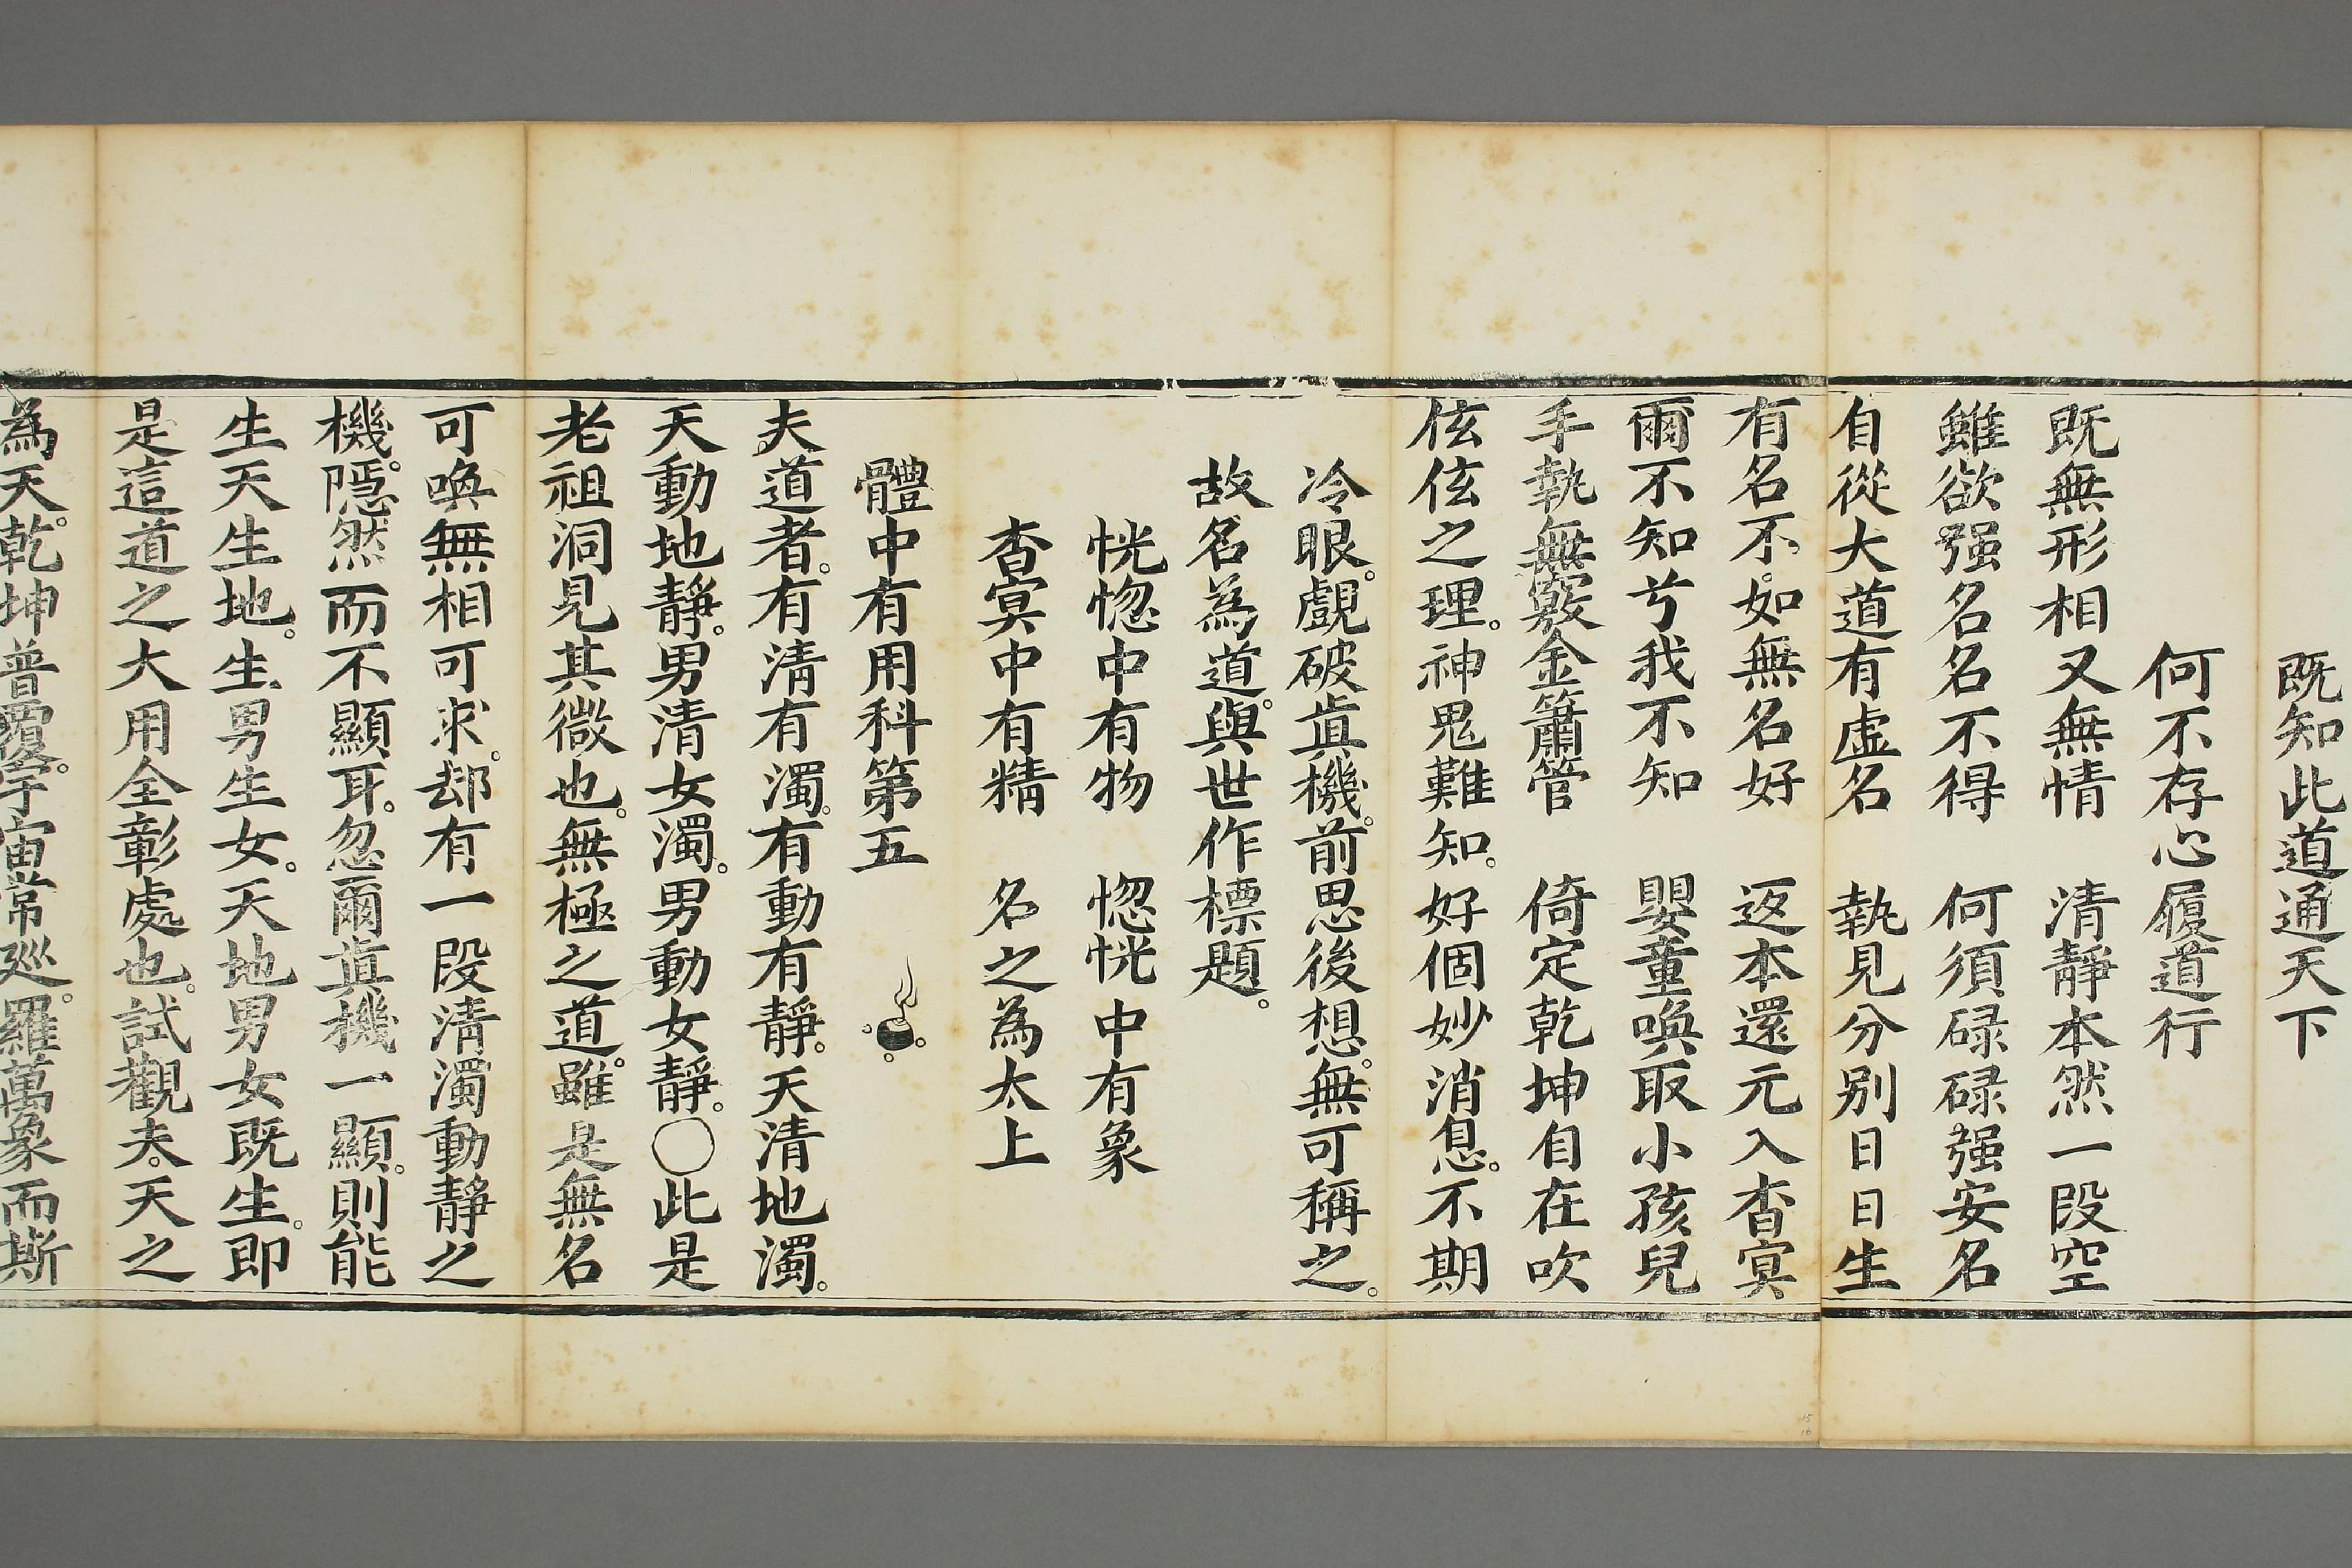 既知此道通天下
何不存心履道行
既無形相又無情　清靜本然一段空
雖欲强名名不得　何須碌碌强安名
自從大道有虛名　執見分別日日生
有名不。如無名好　返本還元入杳冥
爾不知兮我不知　嬰童喚取小孩兒
手執無竅金簫管　倚定乾坤自在吹
伭伭之理。神鬼難知。好個妙消息。不期
冷眼。覷破眞機。前思後想。無可稱之。
故名為道。與世作標題。
恍惚中有物　惚恍中有象
杳冥中有精　名之為太上
體中有用科第五
夫道者。有淸有濁。有動有靜。天清地濁。
天動地靜。男清女濁。男動女靜。〇此是
老祖洞見其微也。無極之道。雖是無名
可喚無相可求。却有一段清濁動靜之
機。隱然而不顯耳。忽爾眞機一顯。則能
生天生地。生男生女。天地男女既生。即
是這道之大用全彰處也。試觀夫。天之
為天。乾坤普覆。宇宙常廵。羅萬象而斯